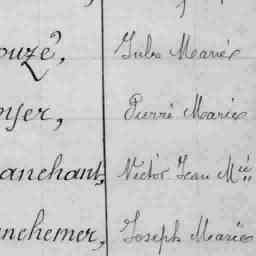 ouzé, Jules Marie
oyer, Pierre Marie
anchant, Victor Jean M.ie
nchemer, Joseph Marie